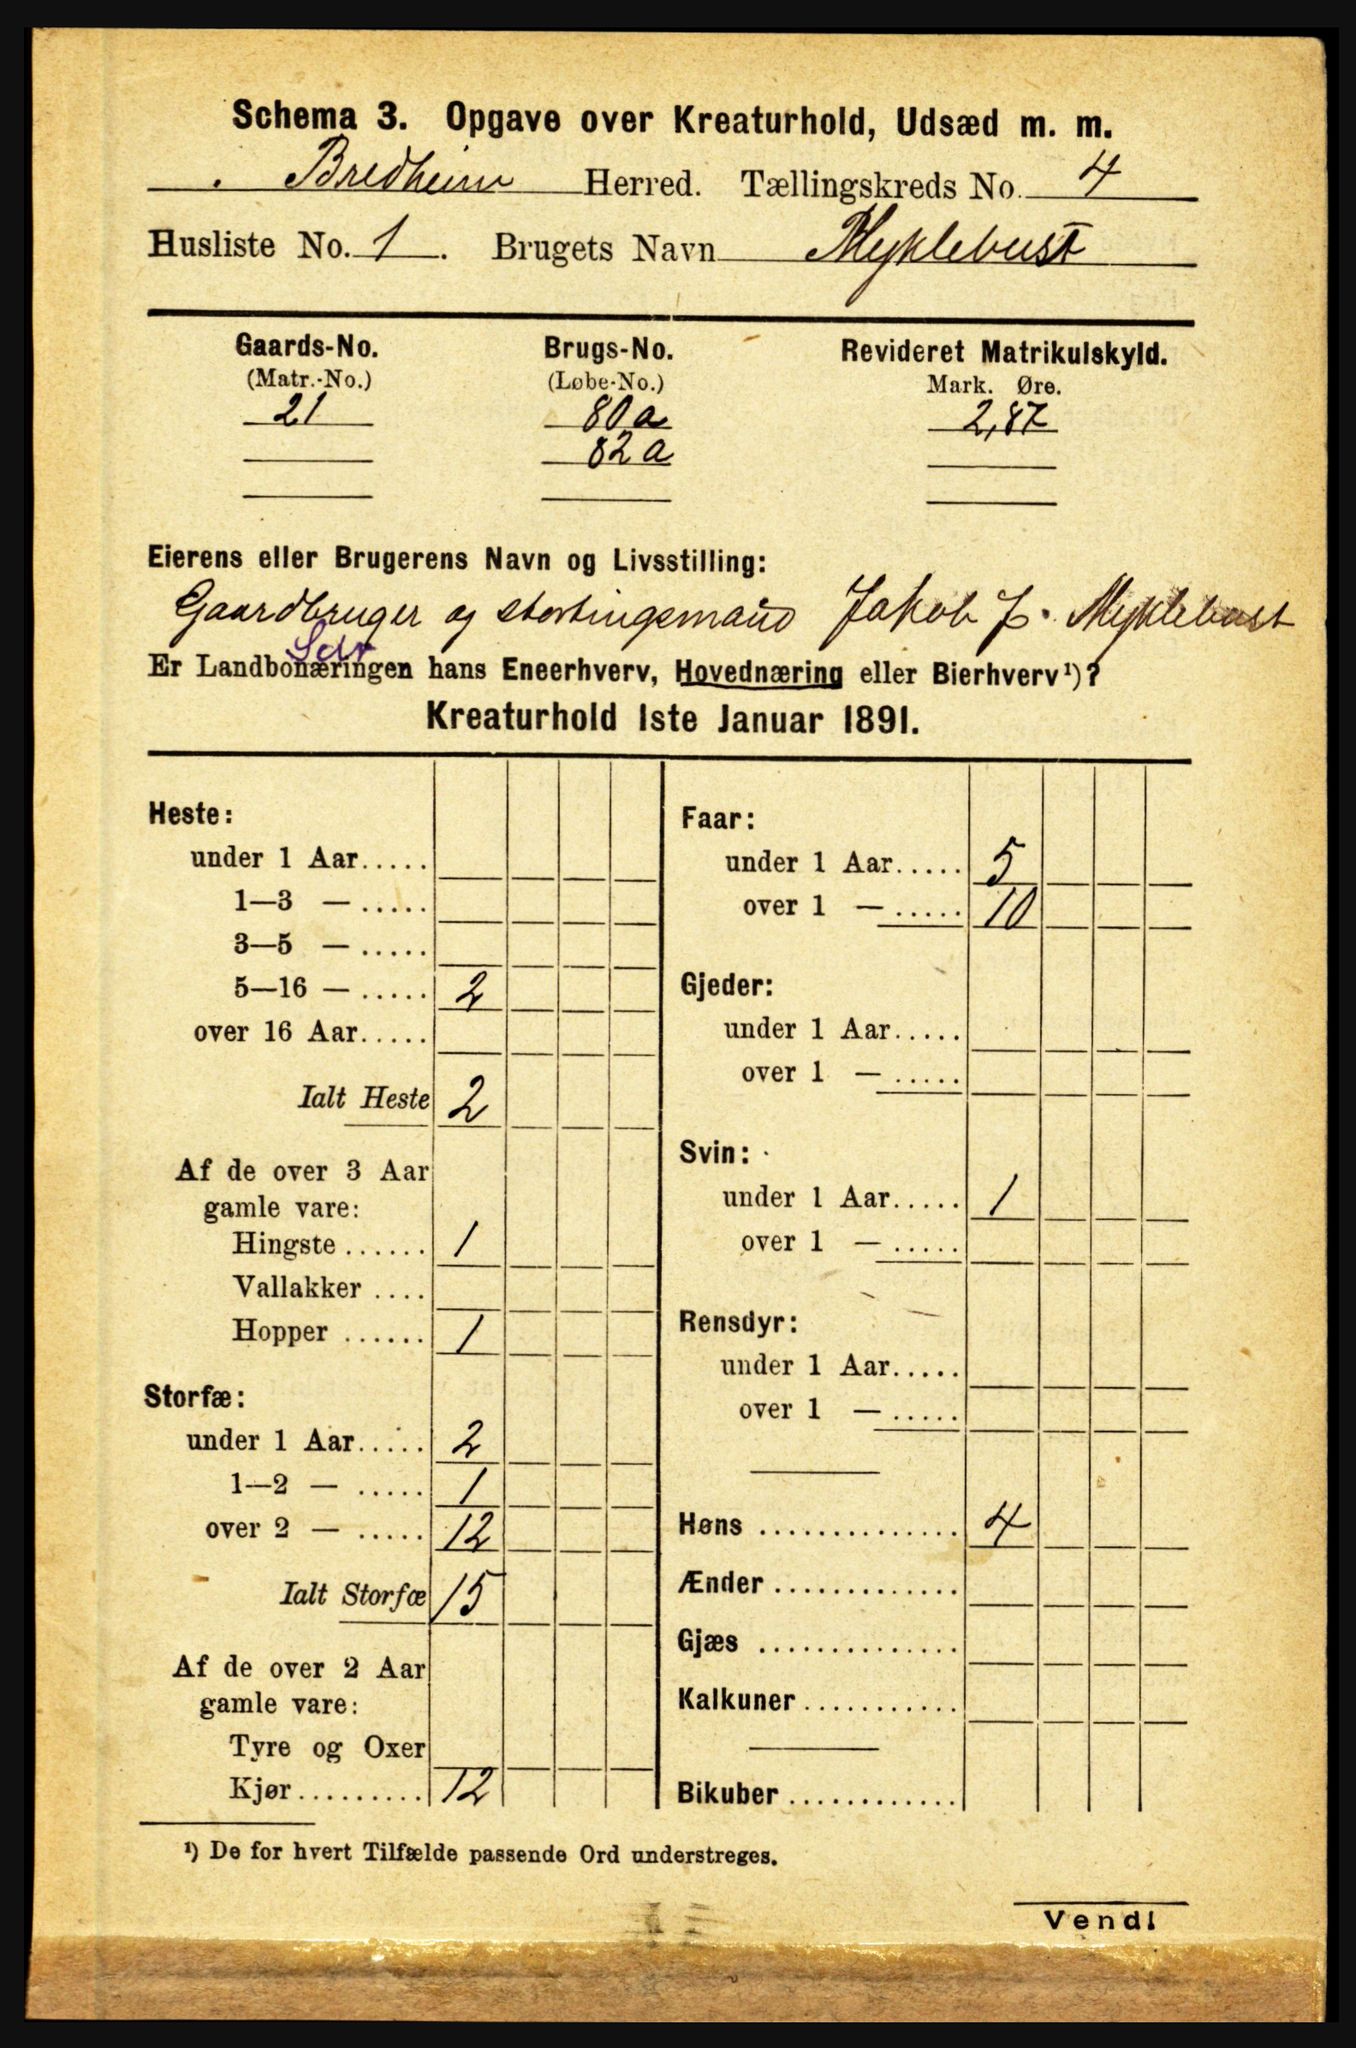 Schema 3. Opgave over Kreaturhold, Udsæd m. m.
Bredheim Herred. Tællingskreds No. 4
Husliste No. 1. Brugets Navn Myklebust
Gaards-No. Brugs-No. Revideret Matrikulskyld.
(Matr.-No.) (Løbe-No.) Mark. Øre.
21 80 a 2,87
82 a
Eierens eller Brugerens Navn og Livsstilling:
Gaardbruger og stortingsmand Jakob J. Myklebust
Er Landbonæringen hans Eneerhverv, Hovednæring eller Bierhverv¹)?
Kreaturhold 1ste Januar 1891.
Heste:
under 1 Aar.....
1—3 — .....
3—5 — .....
5—16 — ..... 2
over 16 Aar.....
Ialt Heste 2
Af de over 3 Aar
gamle vare:
Hingste ...... 1
Vallakker ....
Hopper ...... 1
Storfæ:
under 1 Aar..... 2
1—2 — ..... 1
over 2 — ..... 12
Ialt Storfæ 15
Af de over 2 Aar
gamle vare:
Tyre og Oxer
Kjør......... 12
Faar:
under 1 Aar..... 5
over 1 — ..... 10
Gjeder:
under 1 Aar.....
over 1 — .....
Svin:
under 1 Aar..... 1
over 1 — .....
Rensdyr:
under 1 Aar.....
over 1 — .....
Høns .............. 4
Ænder .............
Gjæs ..............
Kalkuner ...........
Bikuber ............
¹) De for hvert Tilfælde passende Ord understreges.
Vend!